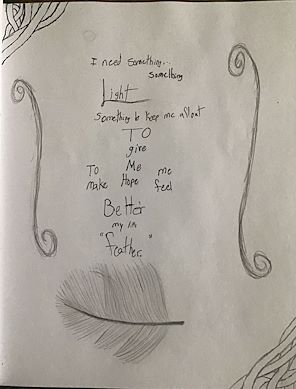 I need something...
something
Light
Something to keep me afloat
TO
give
Me
To me
make Hope feel
Better
my little
"feather."